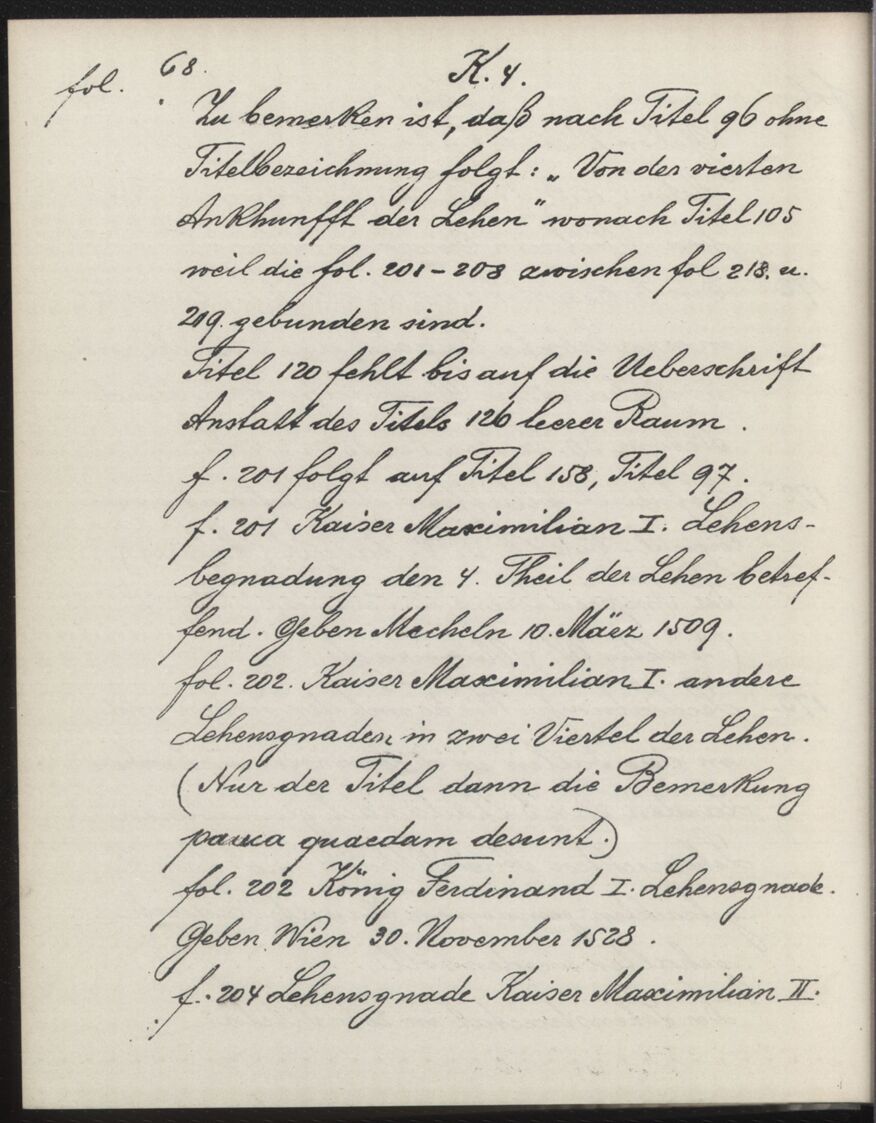 fol. 68.
K. 4.
Zu bemerken ist, daß nach Titel 96 ohne
Titelbezeichnung folgt: „Von der vierten
Ankhunfft der Lehen" wonach Titel 105
weil die fol. 201-208 zwischen fol 218. u.
219. gebunden sind.
Titel 120 fehlt bis auf die Ueberschrift
Anstatt des Titels 126 leerer Raum.
f. 201 folgt auf Titel 158, Titel 97.
f. 201 Kaiser Maximilian I. Lehens-
begnadung den 4. Theil der Lehen betref-
fend. Geben Mecheln 10. März 1509.
fol. 202. Kaiser Maximilian I. andere
Lehensgnaden in zwei Viertel der Lehen.
(Nur der Titel dann die Bemerkung
pauca quaedam desunt.)
fol. 202 König Ferdinand I. Lehensgnade.
Geben Wien 30. November 1528.
f. 204 Lehensgnade Kaiser Maximilian II.